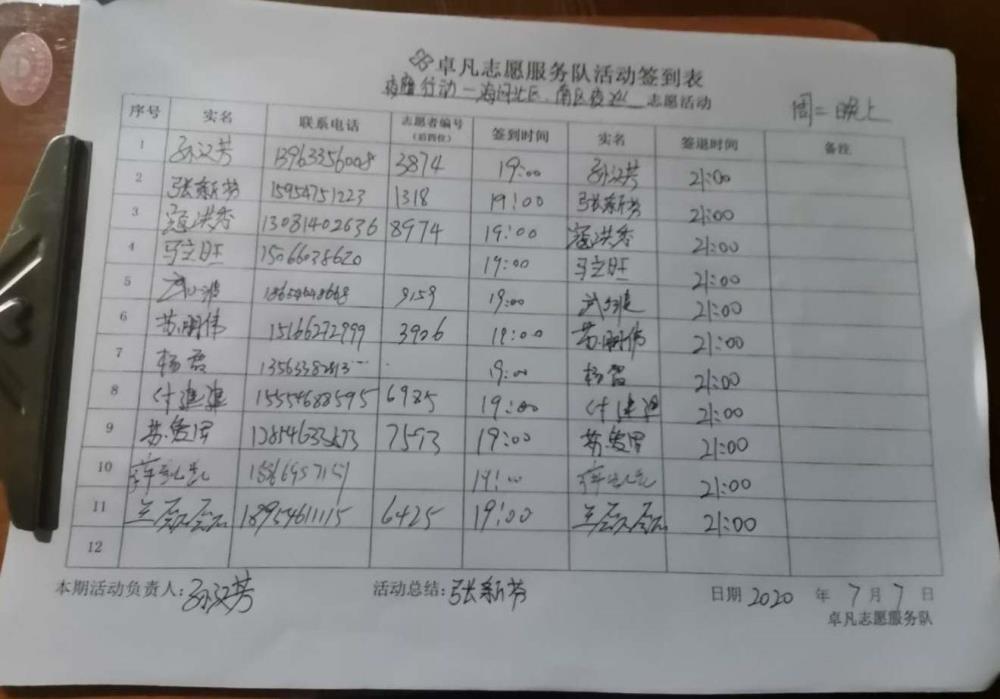 卓凡志愿服务队活动签到表
行动一海河北区、南区夜巡 志愿活动 周二晚上
序号 实名 联系电话 志愿者编号(后四位) 签到时间 实名 签退时间 备注
1 孙汉芳 13963356008 3874 19:00 孙汉芳 21:00
2 张新芬 15954751223 1318 19:00 张新芬 21:00
3 寇洪秀 13081402636 8974 19:00 寇洪秀 21:00
4 马立旺 15066038620 19:00 马立旺 21:00
5 9159 19:00 21:00
6 苏朋伟 15166272999 3906 19:00 苏朋伟 21:00
7 杨君 19:00 21:00
8 付建建 15554688595 6985 19:00 付建建 21:00
9 苏 7593 19:00 苏 21:00
10 19:00 21:00
11 兰磊磊 18954611115 6425 19:00 兰磊磊 21:00
12
本期活动负责人:孙汉芳 活动总结:张新芬 日期 2020 年 7 月 7 日
卓凡志愿服务队